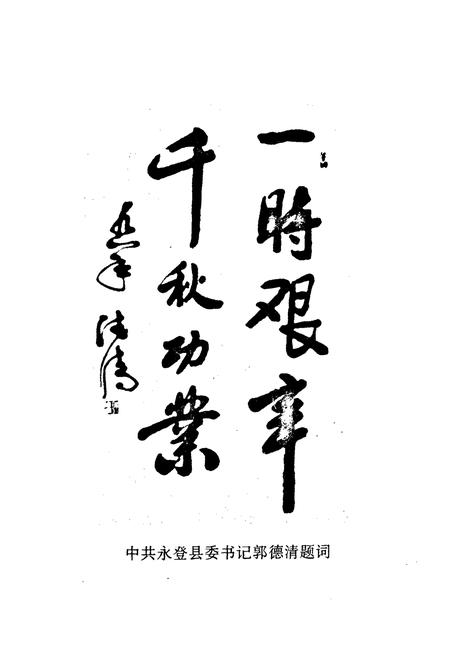 一時艰辛
千秋功業
德清
中共永登县委书记郭德清题词